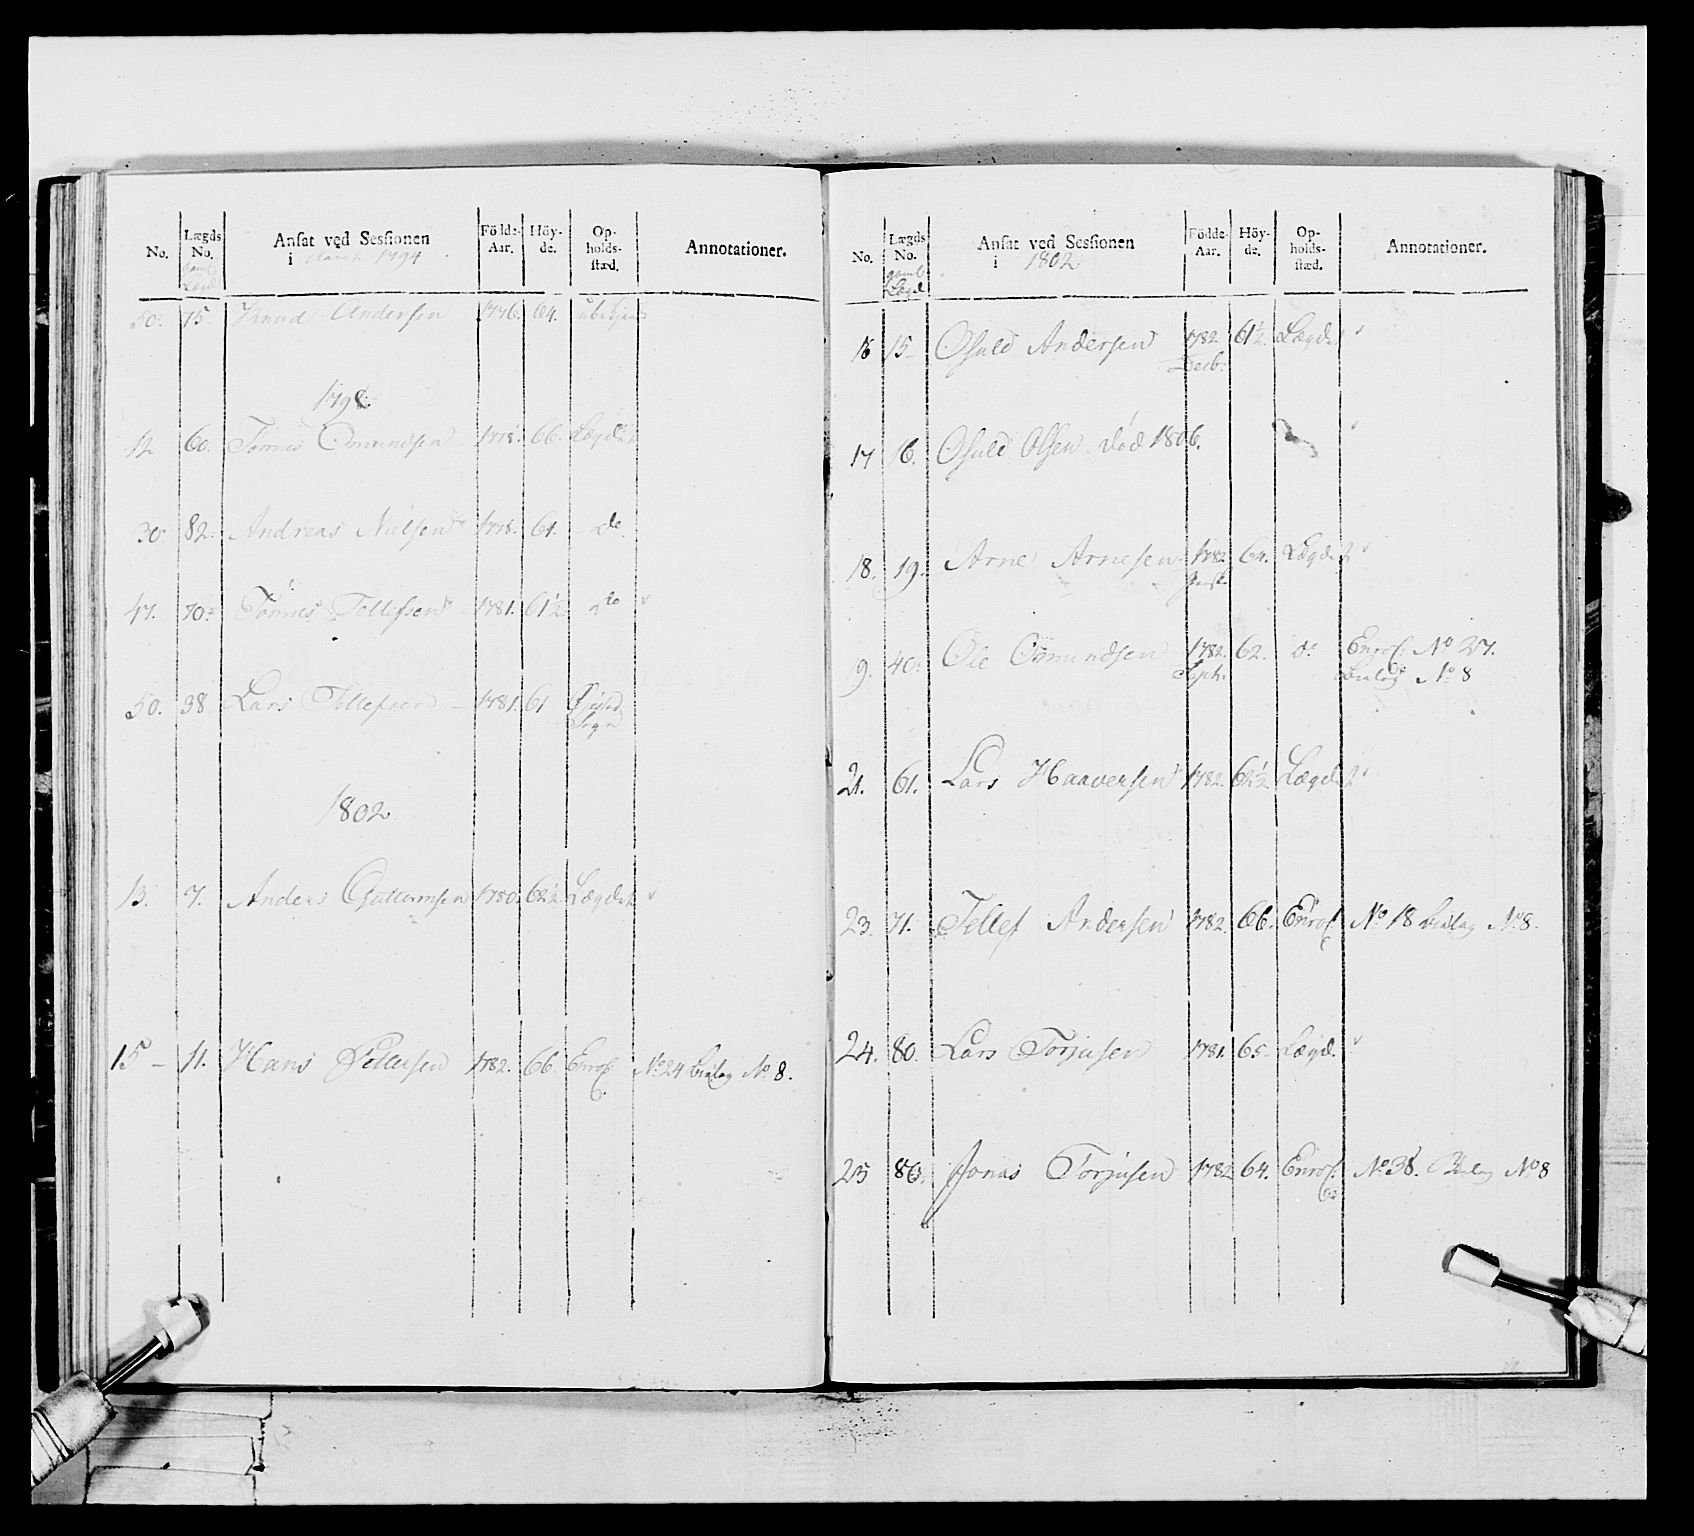 No. Lægds No. Ansat ved Sessionen i 1794 Födde-Aar. Höy-de. Op-holds-stæd. Annotationer.
50. 75 Knud Andersen 1776. 64.
1798.
12 60. Tönnes Omundsen 1778. 66. Lægdet
30. 82. Andreas Nielsen 1778. 61. do
47. 70. Tönnes Tellefsen 1781. 61½ do
50. 38. Lars Tellefsen 1781. 61 Sogn
1802
13. 7. Anders Guttormsen 1780. 62½ Lægdet
15 – 11. Hans Pettersen 1782. 66. Enrol. No 24 Bielag No. 8.
No. Lægds No. gaml. Lægd Ansat ved Sessionen i 1802 Födde-Aar. Höy-de. Op-holds-stæd. Annotationer.
16 15 Osuld Andersen 1782 61½ Lægdet
Decb:
17 16. Osuld Olsen död 1806.
18. 19. Arne Arnesen 1782 64. Lægdet
19. 40. Ole Omundsen 1782. 62. do Enrol: No 27.
Septr. Bielag No 8
21. 61. Lars Haaversen 1782. 62½ Lægdet
23. 71. Tellef Andersen 1782 66. Enrol No 18 Bielag No 8.
24. 80. Lars Torjusen 1781. 65 Lægd.
25 80. Jonas Torjusen 1782 64. Enrol. No 38. Bielag No 8